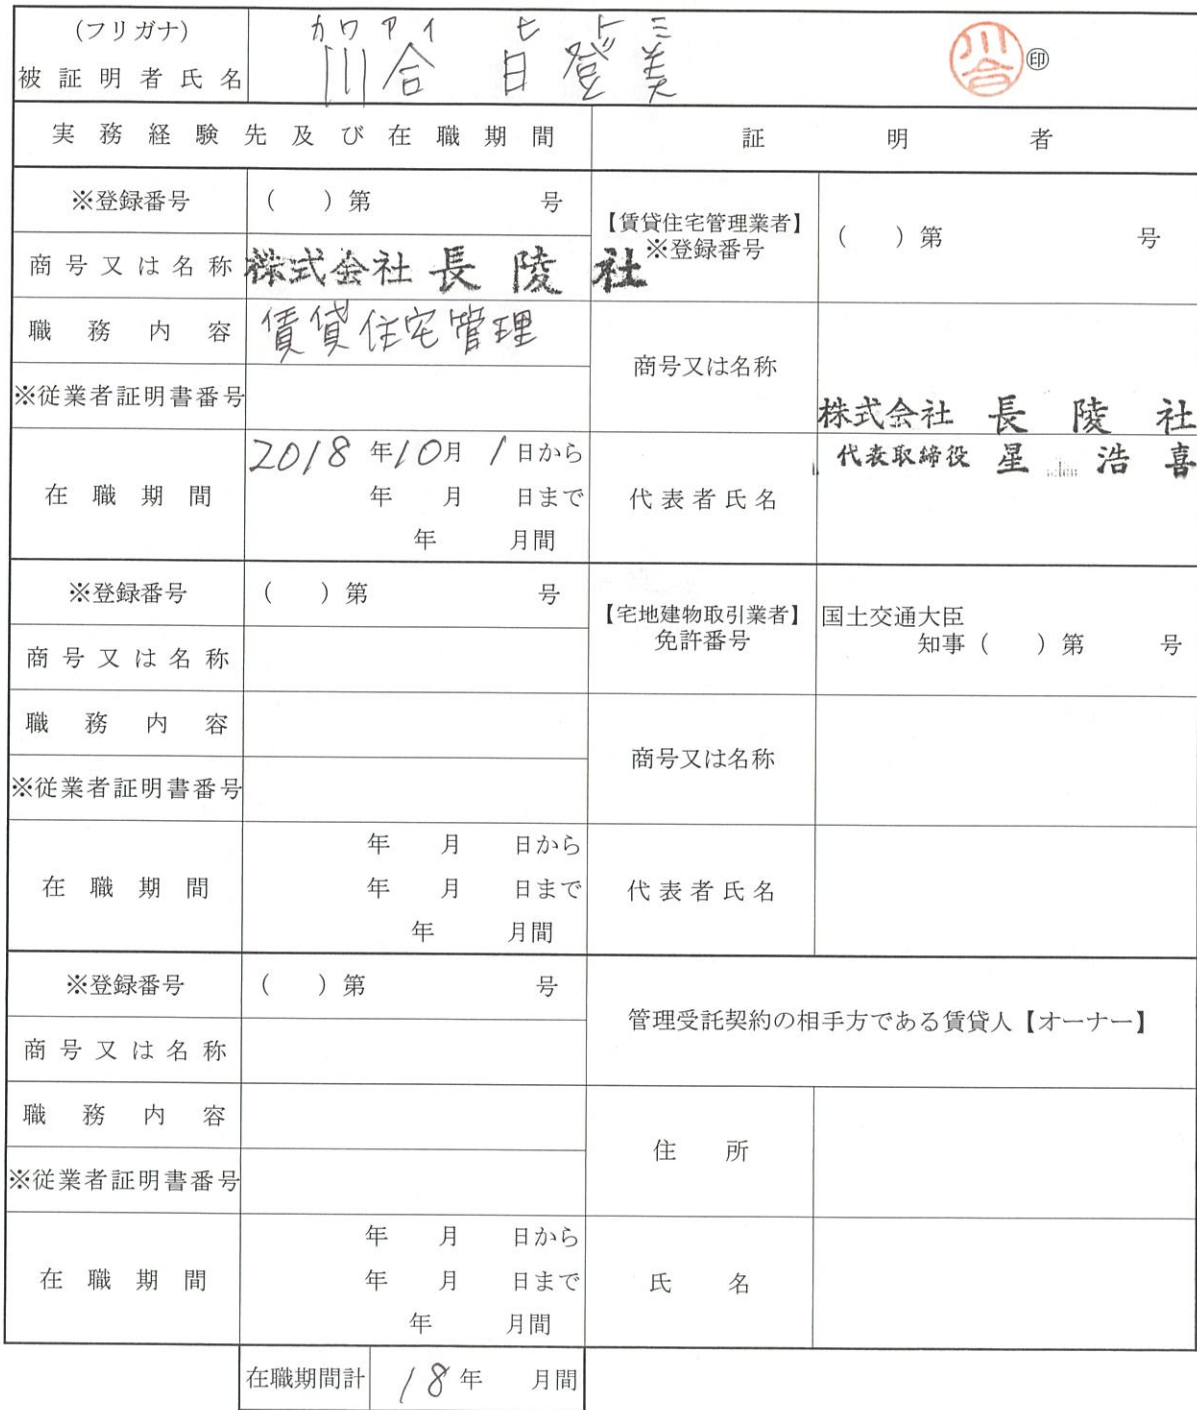 (フリガナ) カワアイ ヒトミ
被証明者氏名 川合 日登美 川合 ㊞
実務経験先及び在職期間 証明者
※登録番号 ( )第 号
商号又は名称 株式会社 長陵社
職務内容 賃貸住宅管理
※従業者証明書番号
在職期間 2018年10月1日から
年 月 日まで
年 月間
【賃貸住宅管理業者】
※登録番号 ( )第 号
商号又は名称 株式会社 長陵社
代表者氏名 代表取締役 星 浩喜
※登録番号 ( )第 号
商号又は名称
職務内容
※従業者証明書番号
在職期間 年 月 日から
年 月 日まで
年 月間
【宅地建物取引業者】 国土交通大臣
免許番号 知事( )第 号
商号又は名称
代表者氏名
※登録番号 ( )第 号
商号又は名称
職務内容
※従業者証明書番号
在職期間 年 月 日から
年 月 日まで
年 月間
管理受託契約の相手方である賃貸人【オーナー】
住所
氏名
在職期間計 18年 月間